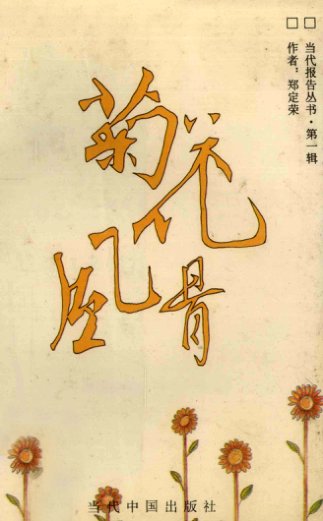 □当代报告丛书·第一辑
□作者：郑定荣
菊花
风骨
当代中国出版社